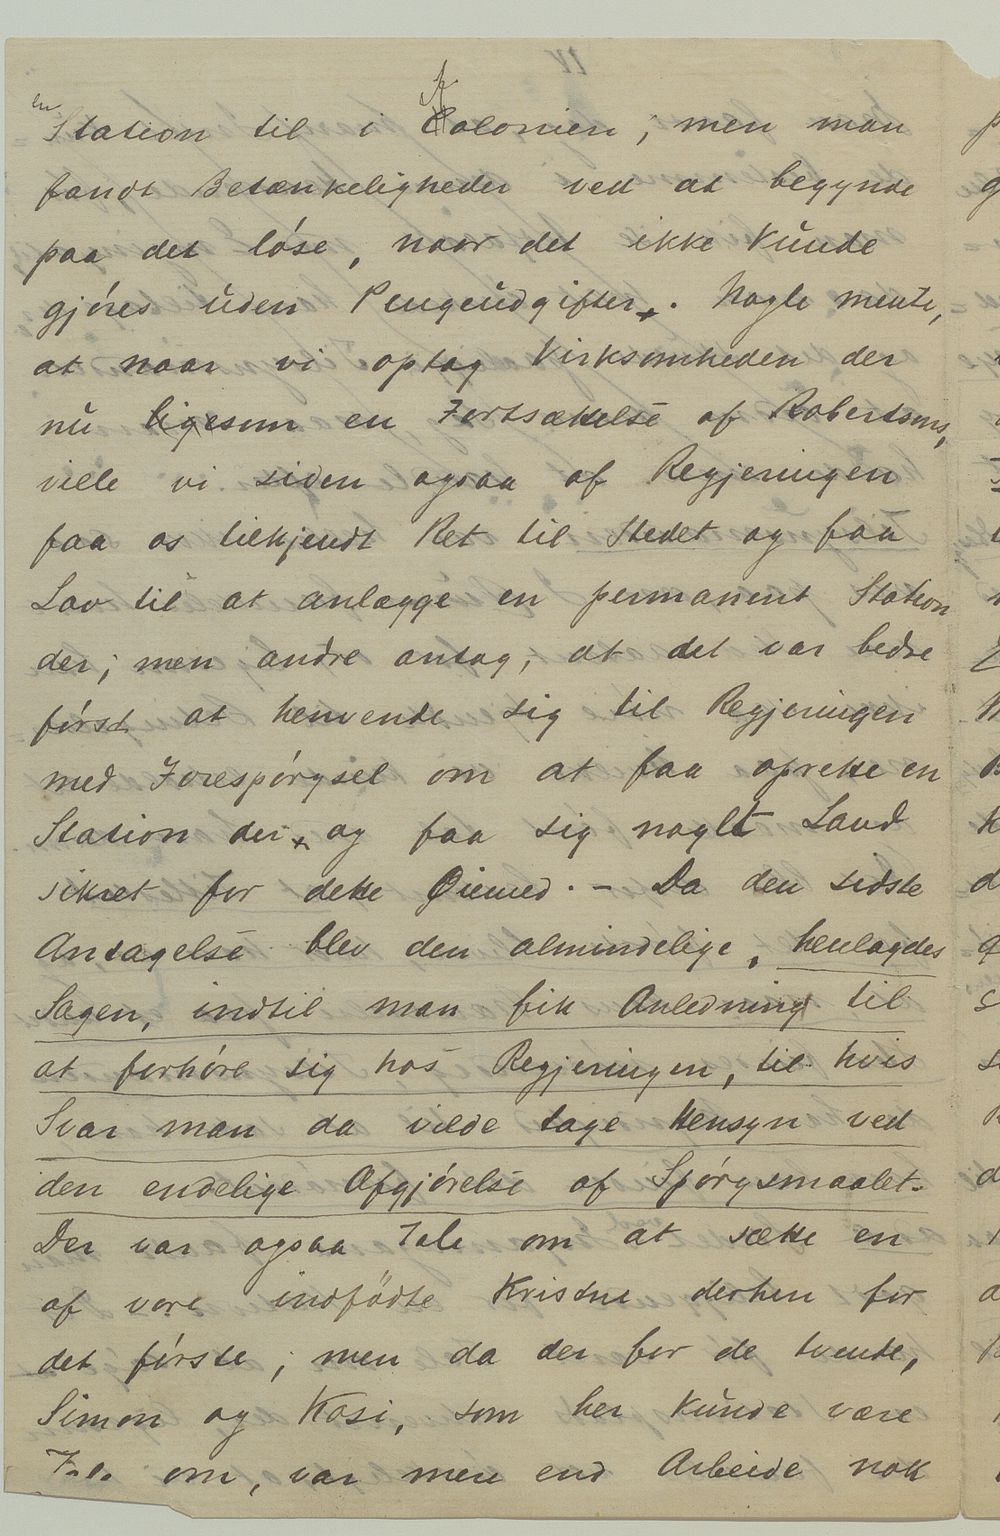 en
Station til i Colonien; men man
fandt Betænkeligheder ved at begynde
paa det löse, naar det ikke kunde
gjöres uden Pengeudgifter. Nogle mente,
at naar vi optog Virksomheden der
nu ligesom en Fortsættelse af Robertsons,
vilde vi siden ogsaa af Regjeringen
faa os tilkjendt Ret til Stedet og faa
Lov til at anlægge en permanent Station
der; men andre antog, at det var bedre
först at henvende sig til Regjeringen
med Forespörgsel om at faa oprette en
Station der, og faa sig noget Land
sikret for dette Øiemed. - Da den sidste
Antagelse blev den almindelige, henlagdes
Sagen, indtil man fik Anledning til
at forhöre sig hos Regjeringen, til hvis
Svar man da vilde tage Hensyn ved
den endelige Afgjörelse af Spörgsmaalet.
Der var ogsaa Tale om at sætte en
af vore indfödte Kristne derhen for
det förste; men da der for de tvende,
Simon og Kosi, som her kunde være
T.o. om, var mere end Arbeide nok